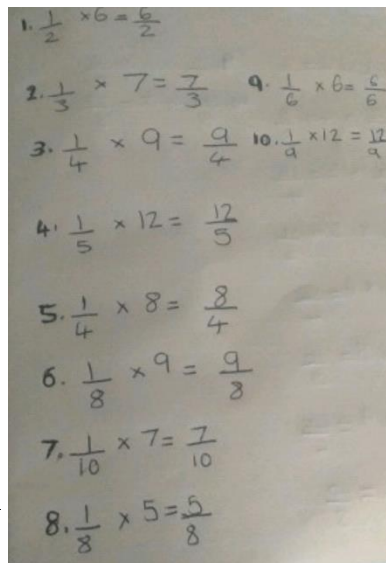 1. 1/2 ×6 = 6/2
2. 1/3 × 7 = 7/3
3. 1/4 × 9 = 9/4
4. 1/5 × 12 = 12/5
5. 1/4 × 8 = 8/4
6. 1/8 × 9 = 9/8
7. 1/10 × 7 = 7/10
8. 1/8 × 5 = 5/8
9. 1/6 × 6 = 6/6
10. 1/9 × 12 = 12/9